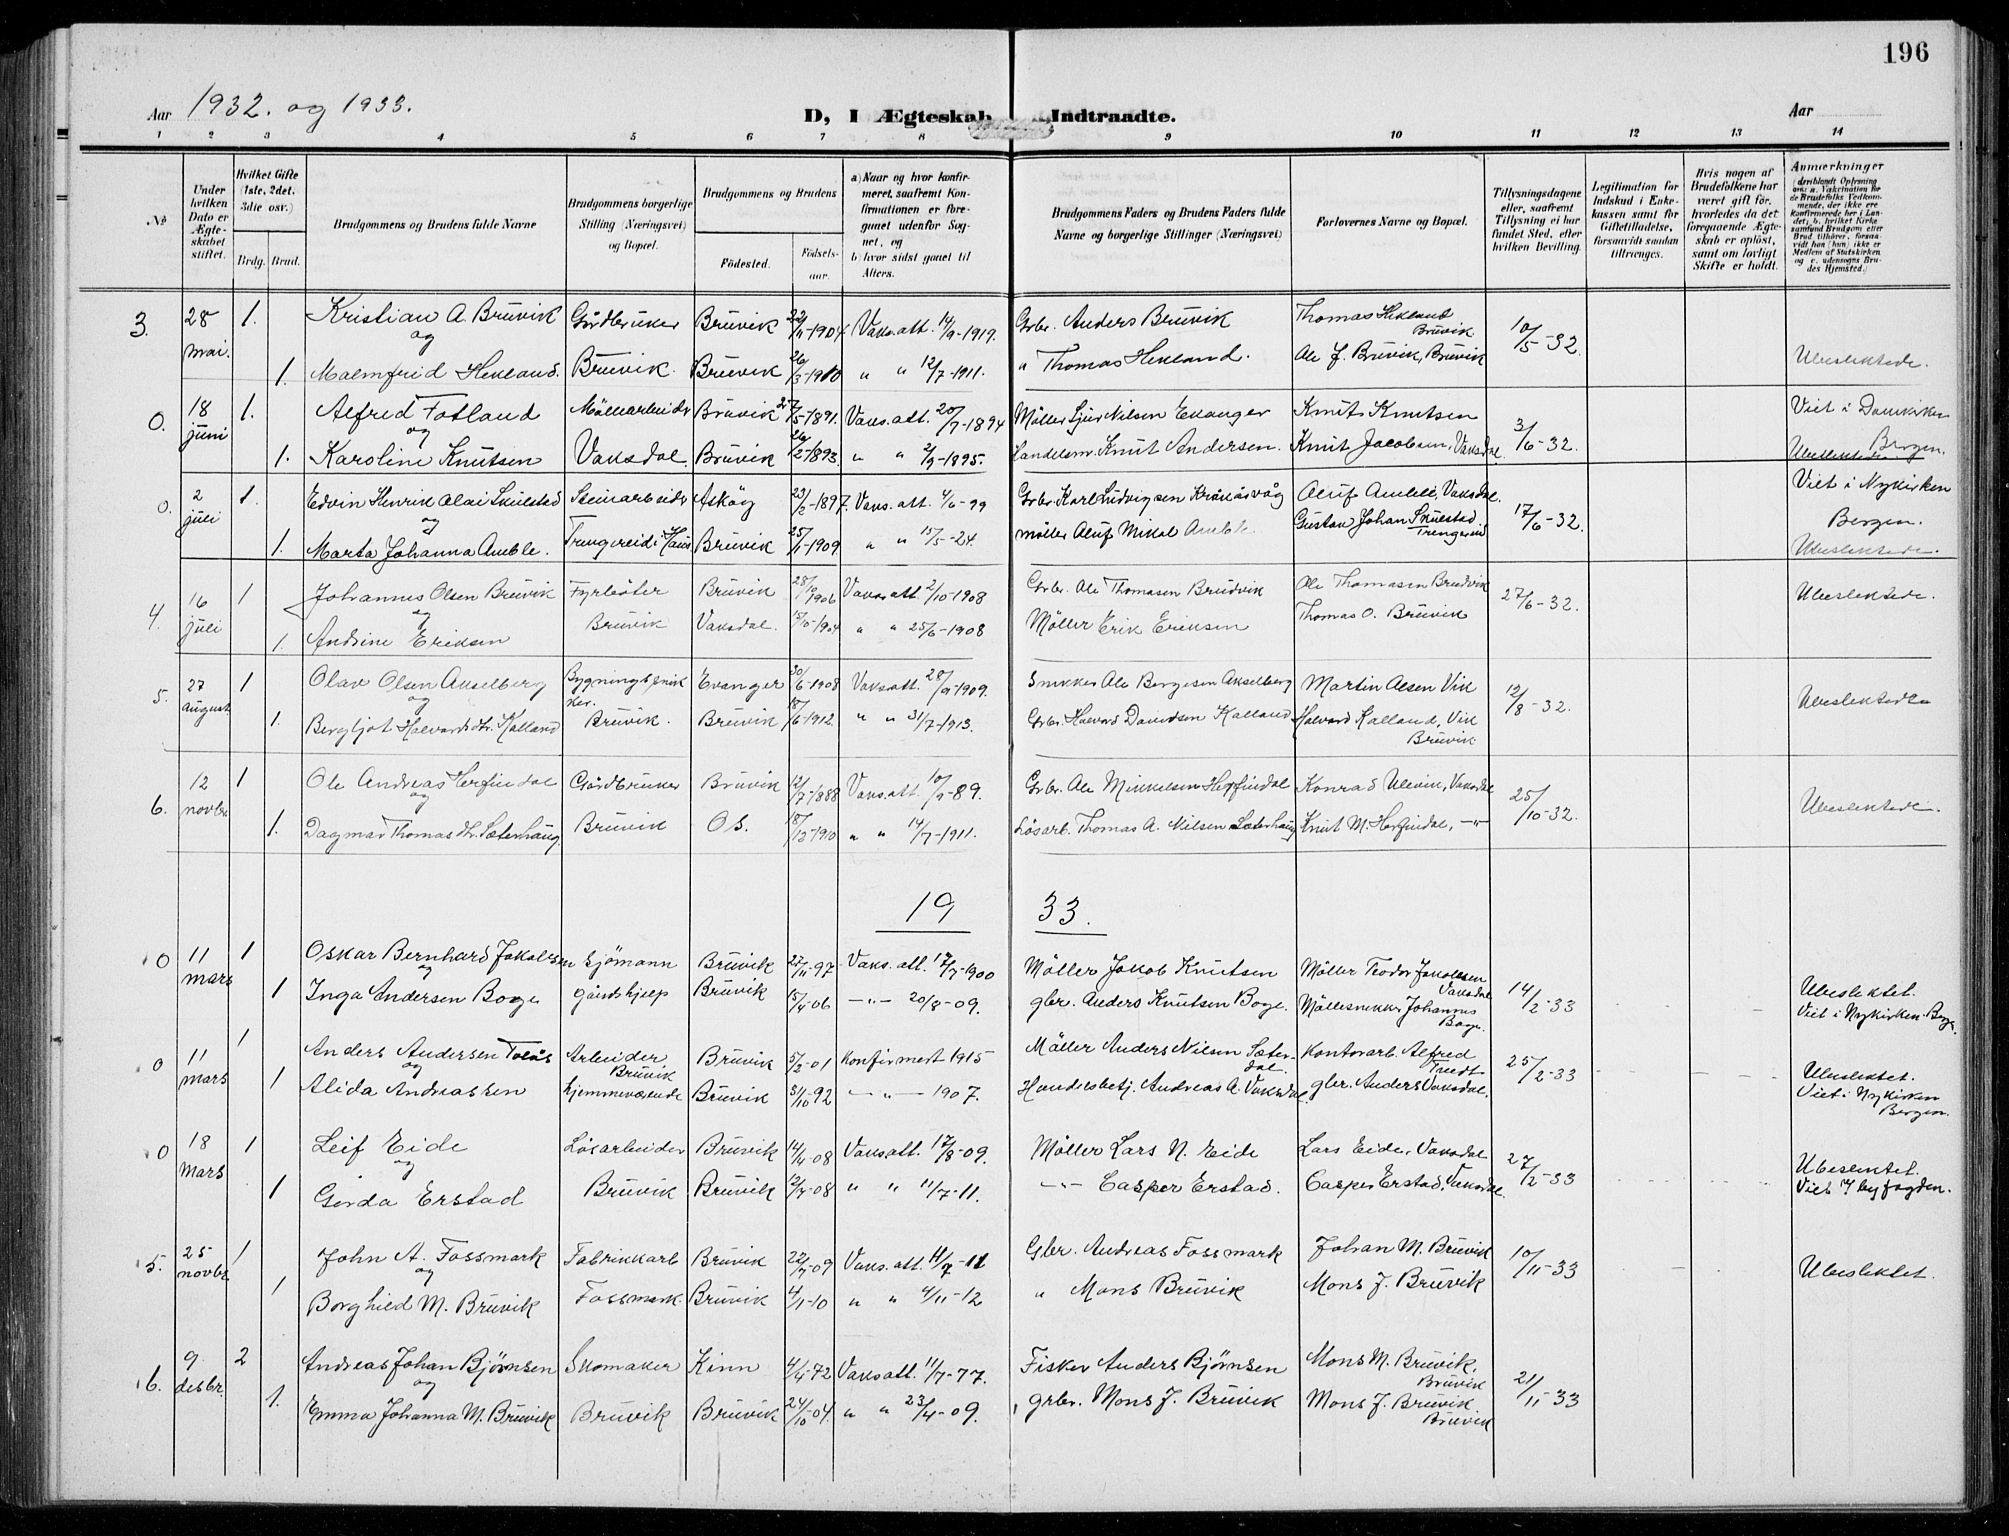 196
Aar 1932. og 1933.
D, I Ægteskab Indtraadte.
Aar
1 2 3 4 5 6 7 8 9 10 11 12 13 14
No
Under hvilken Dato er Ægteskabet stiftet.
Hvilket Gifte (1ste, 2det, 3die osv.)
Brdg. Brud.
Brudgommens og Brudens fulde Navne
Brudgommens borgerlige Stilling (Næringsvei) og Bopæl.
Brudgommens og Brudens
Födested.
Födselsaar.
a) Naar og hvor konfirmeret, saafremt Konfirmationen er foregaaet udenfor Sognet, og
b) hvor sidst gaaet til Alters.
Brudgommens Faders og Brudens Faders fulde Navne og borgerlige Stillinger (Næringsvei)
Forlovernes Navne og Bopæl.
Tillysningsdagene eller, saafremt Tillysning ei har fundet Sted, efter hvilken Bevilling.
Legitimation for Indskud i Enkekassen samt for Giftetilladelse, forsaavidt saadan tiltrænges.
Hvis nogen af Brudefolkene har været gift för, hvorledes da det foregaaende Ægteskab er oplöst, samt om lovligt Skifte er holdt.
Anmærkninger (deriblandt Oplysning om: a. Vakcination for de Brudefolks Vedkommende, der ikke ere konfirmerede her i Landet; b. hvilket Kirkesamfund Brudgom eller Brud tilhörer, forsaavidt han (hun) ikke er Medlem af Statskirken og c. udensogns Brudes Hjemsted.)
3. 28 mai. 1. Kristian A. Bruvik Gårdbruker Bruvik 22/11-1904 Vaks. att. 14/9-1919. Grbr. Anders Bruvik Thomas Hekland Bruvik 10/5-32.
og
1. Malmfrid Hekland. Bruvik. Bruvik 26/3-1910 " " 12/7-1911. " Thomas Hekland. Ole J. Bruvik, Bruvik Ubeslektede.
0. 18 juni 1. Alfred Fotland Möllearbeider Bruvik 27/5-1891. Vaks. att. 20/7-1894 Möller Sjur Nilsen Evanger Knut Knutsen 3/6-32. Viet i Domkirken
og
1. Karoline Knutsen Vaksdal. Bruvik 26/2-1893. " " 2/9-1895. Handelsm. Knut Andersen. Knut Jacobsen, Vaksdal. Bergen. Ubeslektede
0. 2 juli 1. Edvin Henrik Olai Skulstad Steinarbeider Asköy 23/2-1897. Vaks. att. 4/6-99 Grbr. Karl Ludvigsen Kråkåsvåg Oluf Amble, Vaksdal. 17/6-32. Viet i Nykirken
og Gustav Johan Skulstad Trengereid Bergen.
1. Marta Johanna Amble. Trengereid i Haus Bruvik 25/11-1909. " " 15/5-24. möller Oluf Mikal Amble Ubeslektede.
4. 16 juli 1 Johannes Olsen Bruvik Fyrböter Bruvik 28/12 1906 Vaks. att. 2/10-1908 Grbr. Ole Thomasen Brudvik Ole Thomasen Brudvik 27/6-32. Ubeslektede.
og
1. Andrine Eriksen Bruvik Vaksdal. 15/10-1904 " " 25/6-1908 Möller Erik Eriksen Thomas O. Bruvik
5. 27 august 1 Olav Olsen Akselberg Bygningssnikker. Evanger 30/6-1908 Vaks. att. 28/9-1909. Snikker Ole Bergesen Akselberg Martin Olsen Vik 12/8-32. Ubeslektede
og
1. Bergljot Halvardsdtr. Kalland Bruvik. Bruvik 18/6-1912. " " 31/7-1913. Grbr. Halvard Davidsen Kalland Halvard Kalland, Vik Bruvik
6. 12 novbr. 1 Ole Andreas Herfindal Gårdbruker Bruvik 12/7-1888 Vaks. att. 10/9-89. Grbr. Ole Mikkelsen Herfindal Konrad Ulvik, Vaksdal 25/10-32. Ubeslektede.
og
1. Dagmar Thomasdtr. Sæterhaug. Bruvik Os. 18/12-1910 " " 14/7-1911. Lösarb. Thomas A. Nilsen Sæterhaug Knut M. Herfindal, -"-
19 33.
0 11 mars 1 Oskar Bernhard Jakobsen Sjömann Bruvik 27/11-97 Vaks. att. 17/7-1900 Möller Jakob Knutsen Möller Teodor Jakobsen Vaksdal 14/2-33
og
1 Inga Andersen Boge gårdshjelp Bruvik 15/4-06 -"- 20/8-09. gbr. Anders Knutsen Boge. Möllesnikker Johannes Boge. Ubeslektet. Viet i Nykirken. Berg.
0 11 mars 1 Anders Andersen Toläs Arbeider Bruvik Bruvik 5/2-01 Konfirmert 1915 Möller Anders Nilsen Sæterdal. Kontorarb. Alfred Tvedt 25/2-33
og
1 Alida Andreassen hjemmeværende Bruvik 31/10-92 -"- 1907. Handelsbetj. Andreas A. Vaksdal. gbr. Anders Vaksdal. Ubeslektet. Viet i Nykirken Bergen.
0 18 mars 1 Leif Eide Lösarbeider Bruvik 14/4-08 Vaks att. 17/8-09. Möller Lars N. Eide Lars Eide, Vaksdal 27/2-33 Ubeslektet.
og
1 Gerda Erstad Bruvik Bruvik 12/7-08 " " 11/7-11. -"- Casper Erstad. Casper Erstad, Vaksdal. Viet i byfogden.
5. 25 novbr. 1 John A. Fossmark Fabrikkarb Bruvik 22/7-09 Vaks. att. 11/7-11 Gbr. Andreas Fossmark Johan M. Bruvik 10/11-33 Ubeslektet.
og
1 Borghild M. Bruvik Fossmark. Bruvik 4/1-10 " " 4/11-12 " Mons Bruvik Mons J. Bruvik
6. 9 desbr. 2 Andreas Johan Bjørnsen Skomaker Kinn 4/4-72 Vaks att. 11/7-77. Fisker Anders Bjørnsen Mons M. Bruvik, Bruvik 21/11-33
og
1. Emma Johanna M. Bruvik Bruvik Bruvik 24/10-04. " " 23/4-09. grbr. Mons J. Bruvik Mons J. Bruvik Bruvik